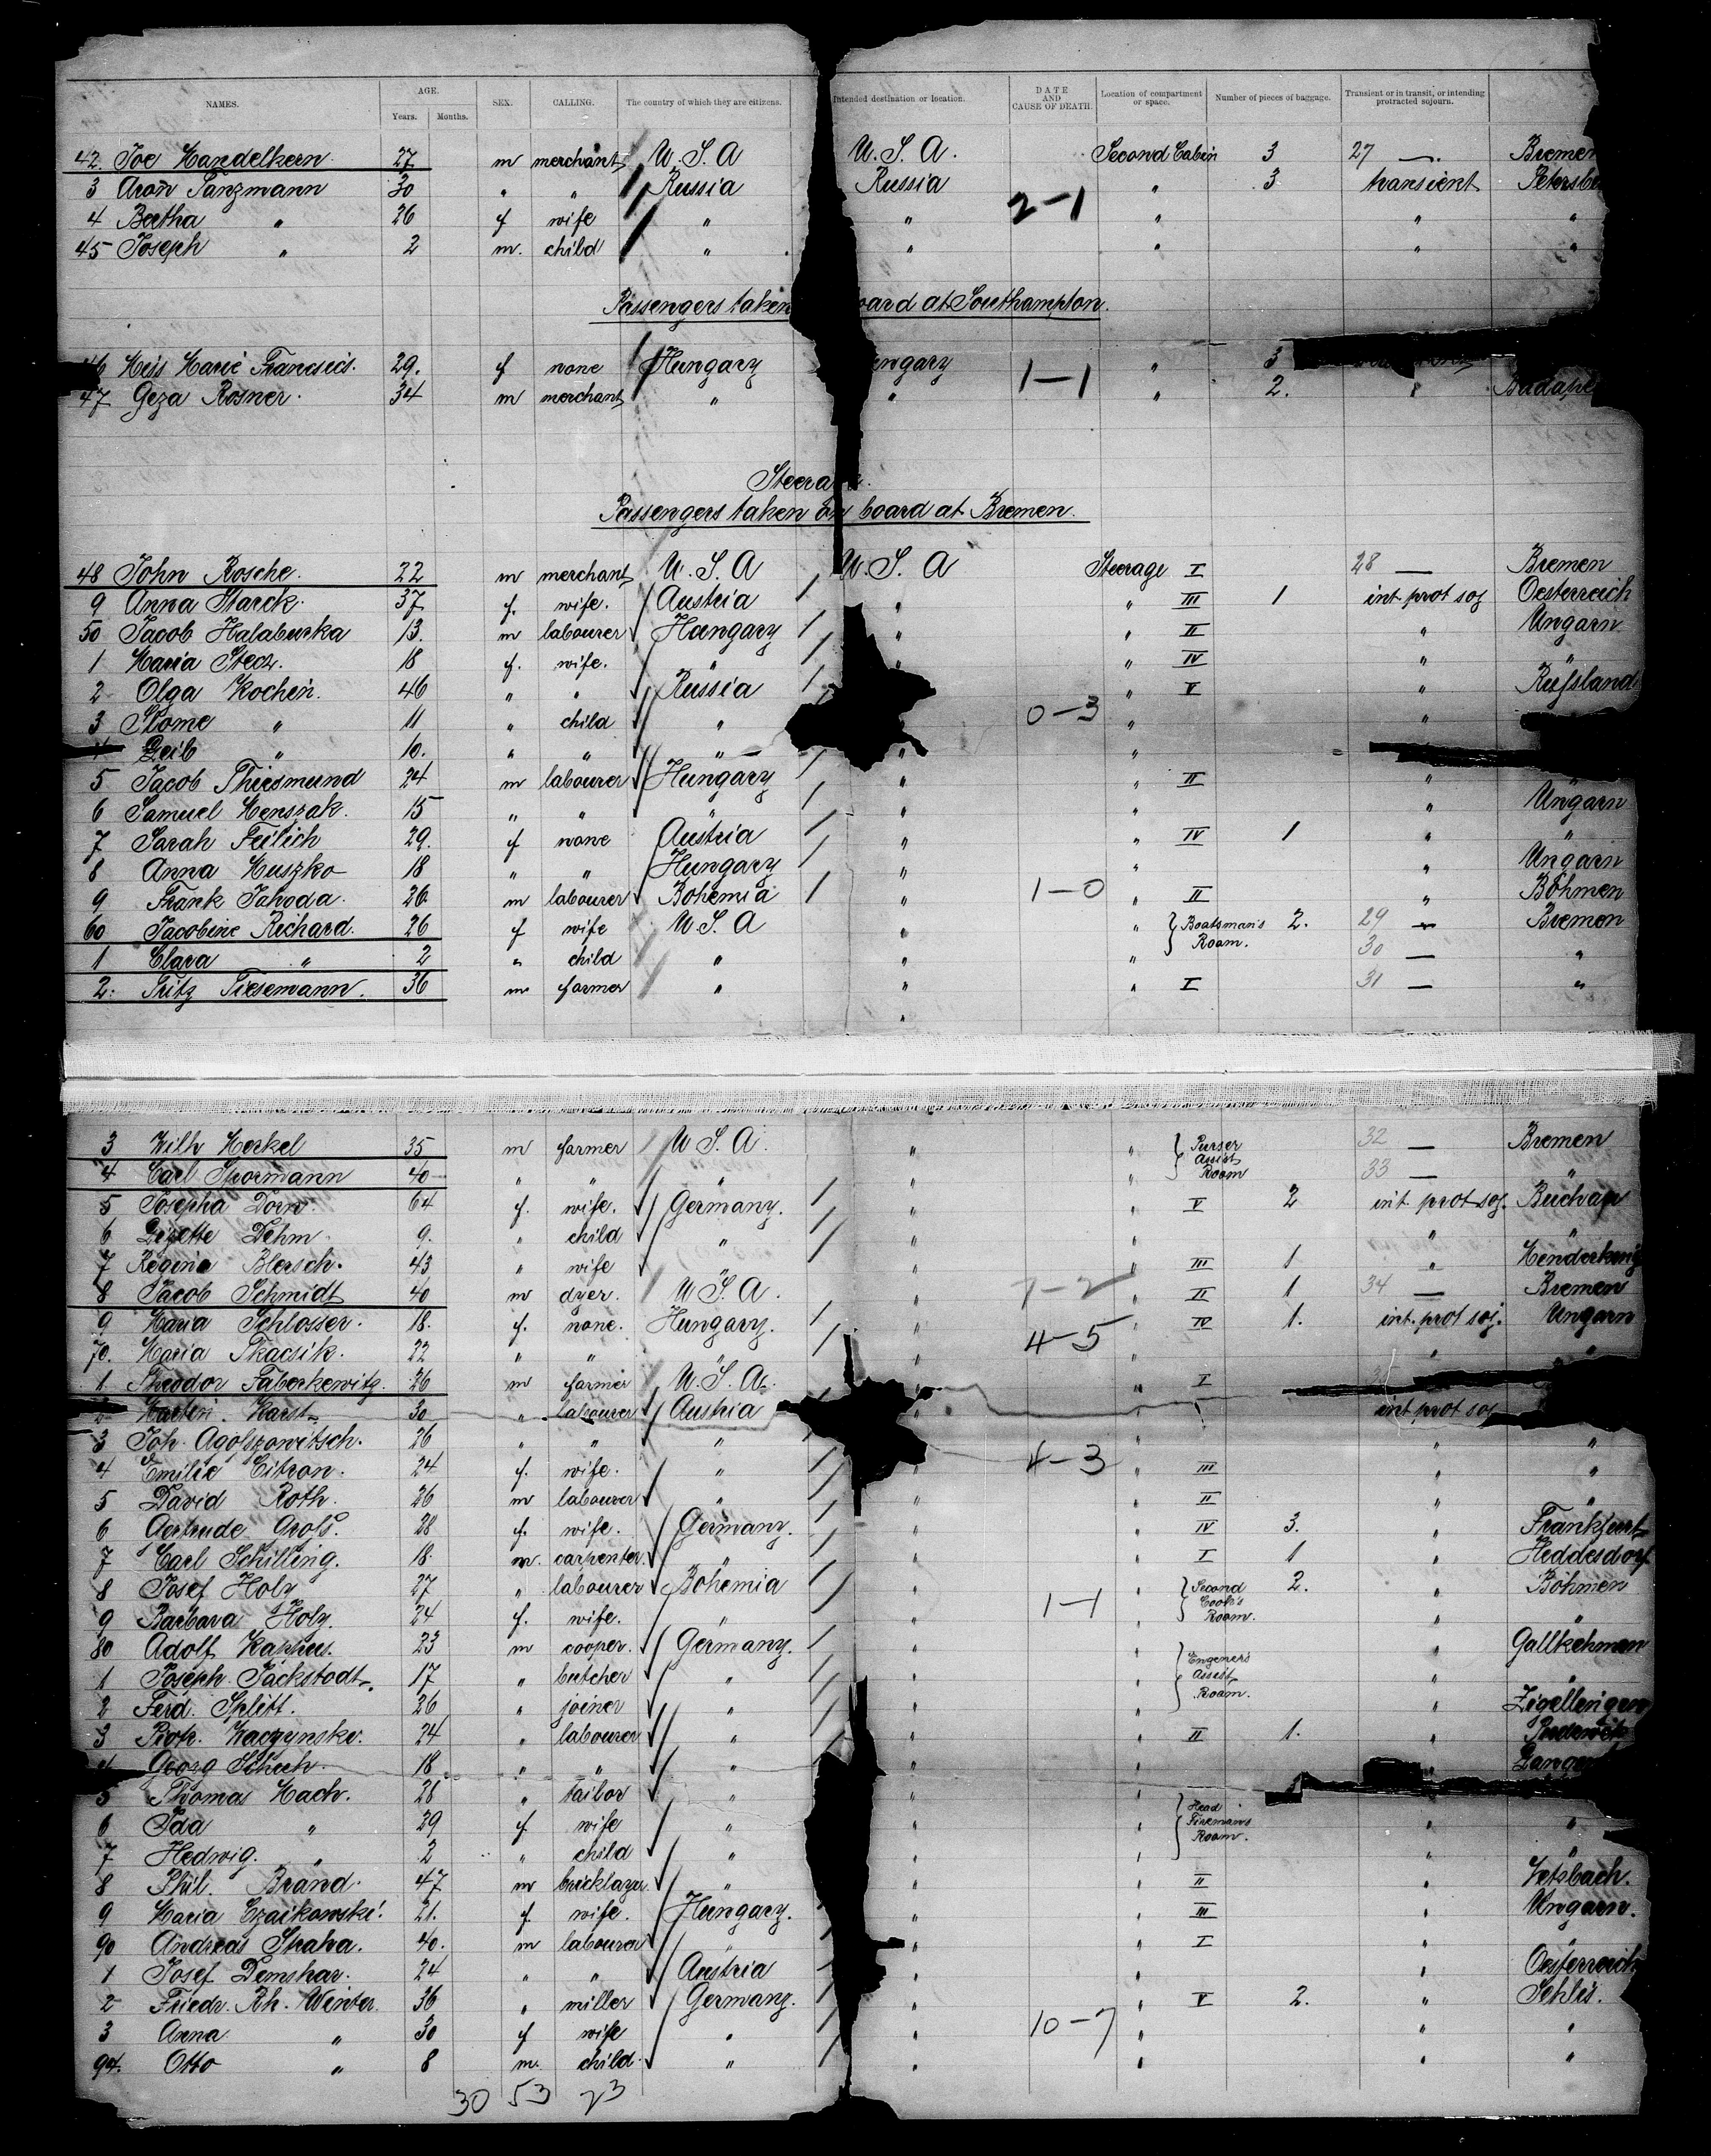 NAMES. AGE. Years. Months. SEX. CALLING. The country of which they are citizens. Intended destination or location. DATE AND CAUSE OF DEATH. Location of compartment or space. Number of pieces of baggage. Transient or in transit, or intending protracted sojourn.
42. Joe Handelkern. 27 m merchant U.S.A U.S.A. Second Cabin 3 27 —. Bremen
3 Aron Tanzmann 30 " " Russia Russia " 3 transient
4 Bertha " 26 f wife " " 2-1 " " "
45 Joseph " 2 m. child " " " " "
Passengers taken board at Southampton.
46 Miss Marie 29. f none Hungary 1-1 " 3
47 Geza Rosner. 34 m merchant " " " 2. "
Steerage.
Passengers taken on board at Bremen.
48 John Rosche. 22 m merchant U.S.A U.S.A Steerage I 28 — Bremen
9 Anna Starck. 37 f. wife. Austria " " III 1 int. prot soj Oesterreich
50 Jacob Halaburka 13. m labourer Hungary " " II " Ungarn
1 Maria Stecz. 18 f. wife. " " " IV " "
2 Olga Kochen. 46 " " Russia " V " Rußland
3 Slome " 11 " child " 0-3 " "
4 Leib " 10. " " " " "
5 Jacob Thiesmund 24 m labourer Hungary " " II "
6 Samuel Menszak. 15 " " " " " " Ungarn
7 Sarah Feilich 29. f none Austria " " IV 1 " "
8 Anna Huszko 18 " " Hungary " " " Ungarn
9 Frank Jahoda. 26. m labourer Bohemia " 1-0 " II " Böhmen
60 Jacobine Richard. 26 f wife U.S.A " " Boatsman's Room. 2. 29 — Bremen
1 Clara " 2 " child " " " 30 — "
2. Fritz Tiesemann. 36 m farmer " " " I 31 — "
"
3 Wilh Merkel 35 m farmer U.S.A. " " Purser Assist Room 32 — Bremen
4 Carl Spormann 40 " " " " " 33 — "
5 Josepha Dorn. 64 f. wife. Germany. " " V 2 int. prot soj. Buchau
6 Lizette Dehm. 9. " child " " " " "
7 Regina Blersch. 43 " wife " " " III 1 "
8 Jacob Schmidt 40 m dyer. U.S.A. " 7-2 " II 1 34 — Bremen
9 Maria Schlosser. 18. f. none. Hungary. " " IV 1. int. prot soj. Ungarn
70. Maria Tkacsik. 22 " " " " 4-5 " " "
1 Theodor Faberkewitz. 26 m farmer U.S.A. " " I
2 Karst. 30 " labourer Austria " int. prot soj
3 Joh. Agolszowitsch. 26 " " " " " "
4 Emilie Citron. 24 f. wife. " " 4-3 " III " "
5 David Roth. 26 m labourer " " " II " "
6 Gertrude Groß. 28 f. wife. Germany. " " IV 3. " Frankfurt
7 Carl Schilling. 18. m. carpenter. " " " I 1 " Heddesdorf
8 Josef Holz 27 " labourer Bohemia " " Second Cook's Room. 2. " Böhmen
9 Barbara Holz. 24 f. wife. " " 1-1 " " "
80 Adolf Kappus. 23 m cooper. Germany. " " Engener's Assist Room. " Gallkehmen
1 Joseph Päckstodt. 17 " butcher " " " " "
2 Ferd. Splitt. 26 " joiner " " " "
3 Kaczynski. 24 " labourer " " " II 1. "
4 Georg Schuh. 18 " " " " " "
5 Thomas Mach. 28 " tailor " " " Head Fireman's Room.
6 Ida " 29 f. wife " " " " "
7 Hedwig. " 2 " child " " " "
8 Phil. Brand. 47 m bricklayer. " " " II "
9 Maria Czaikowski. 21. f. wife. Hungary. " " III " Ungarn.
90 Andreas Spaha. 40. m labourer " " " I " "
1 Josef Demshar. 24 " " Austria " " " Oesterreich
2 Friedr. Rh. Winter. 36 " miller Germany. " " V 2. " Schles.
3 Anna " 30 f wife " " 10-7 " " "
94. Otto " 8 m. child. " " " " "
30 53 23